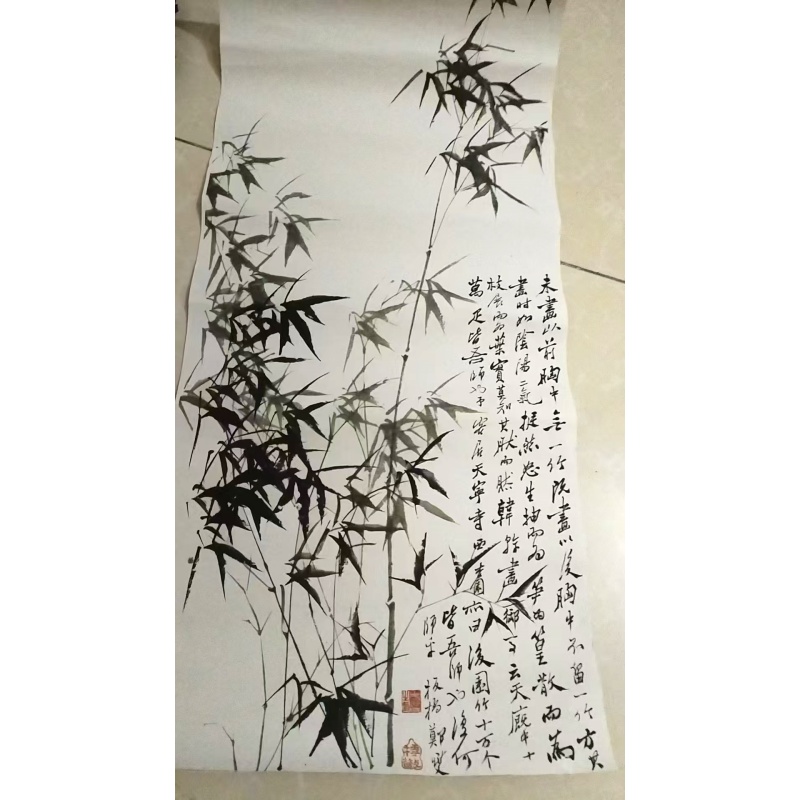 未畫以前胸中無一竹既畫以後胸中不留一竹方其
畫時如陰陽二氣挺然怒生抽而為笋為篁散而為
枝展而為葉實莫知其然而然韓幹畫御馬云天廄中十
萬疋皆吾師也予客居天寧寺西廂亦曰後園竹十万个
皆吾師也復何
師乎 板橋鄭燮